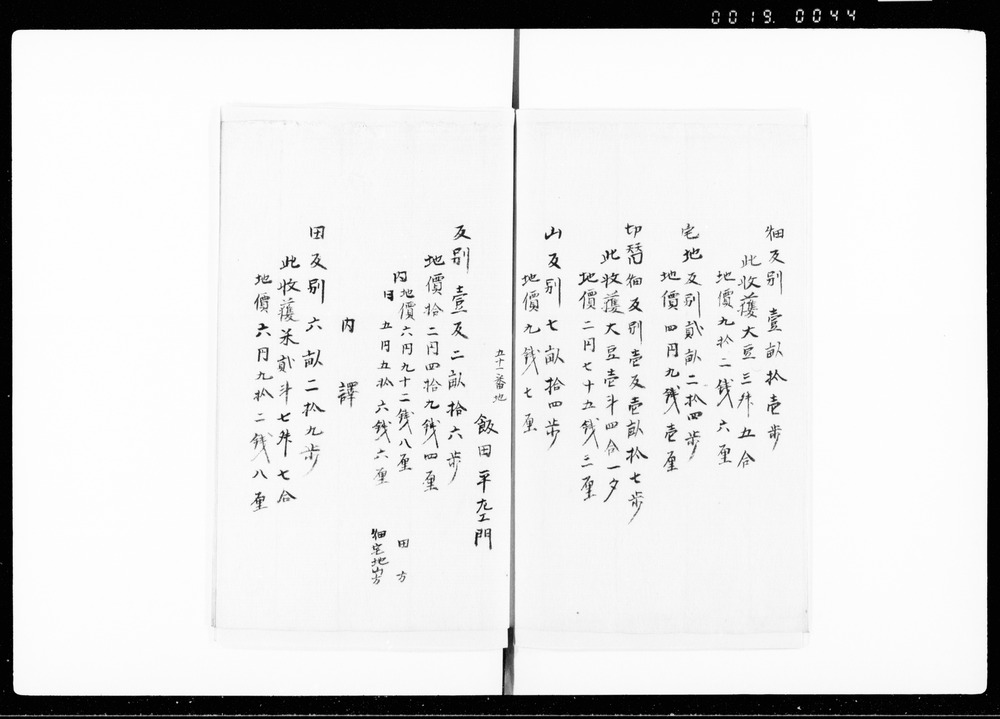 0019. 0044
畑反別 壹畝拾壱歩
此收穫大豆三舛五合
地價九拾二銭六厘
宅地反別貳畝二拾四歩
地價四円九銭壱厘
切替畑反別壱反壱畝拾七歩
此收穫大豆壱斗四合一夕
地價二円七十五銭三厘
山反別七畝拾四歩
地價九銭七厘
五十一番地
飯田平左エ門
反別 壹反二畝拾六歩
地價拾二円四拾九銭四厘
内地價六円九十二銭八厘 田方
〃 五円五拾六銭六厘 畑宅地山方
内譯
田反別 六畝二拾九歩
此收穫米貳斗七舛七合
地價六円九拾二銭八厘